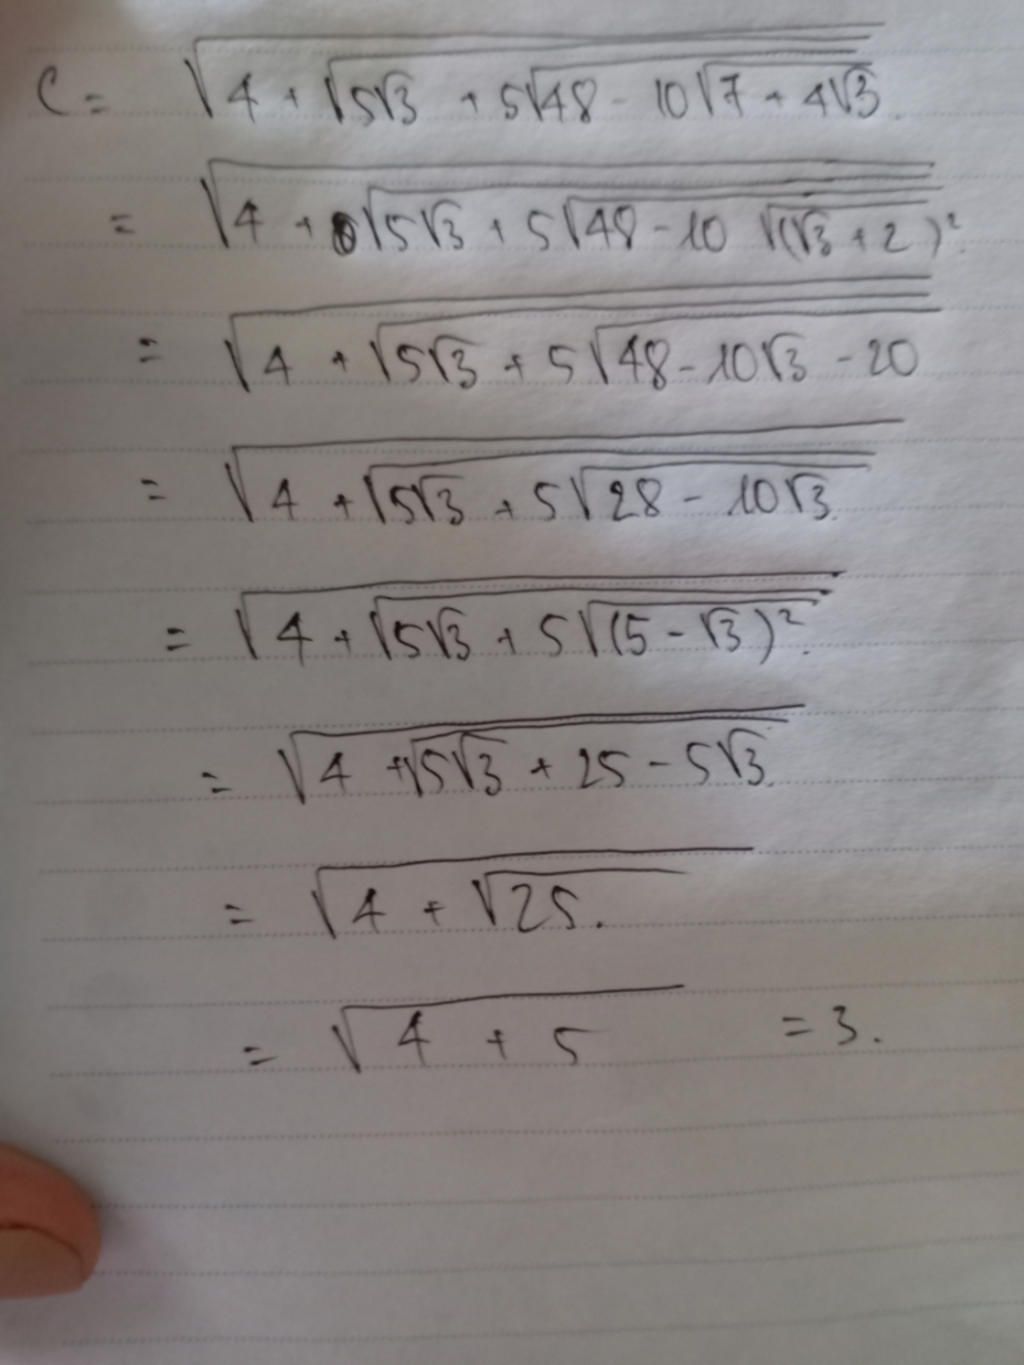 C = √(4 + √(5√3 + 5√(48 - 10√(7 + 4√3)))).
= √(4 + √(5√3 + 5√(48 - 10 √((√3 + 2)²)))).
= √(4 + √(5√3 + 5√(48 - 10√3 - 20)))
= √(4 + √(5√3 + 5√(28 - 10√3))).
= √(4 + √(5√3 + 5√((5 - √3)²))).
= √(4 + √(5√3 + 25 - 5√3)).
= √(4 + √25).
= √(4 + 5) = 3.